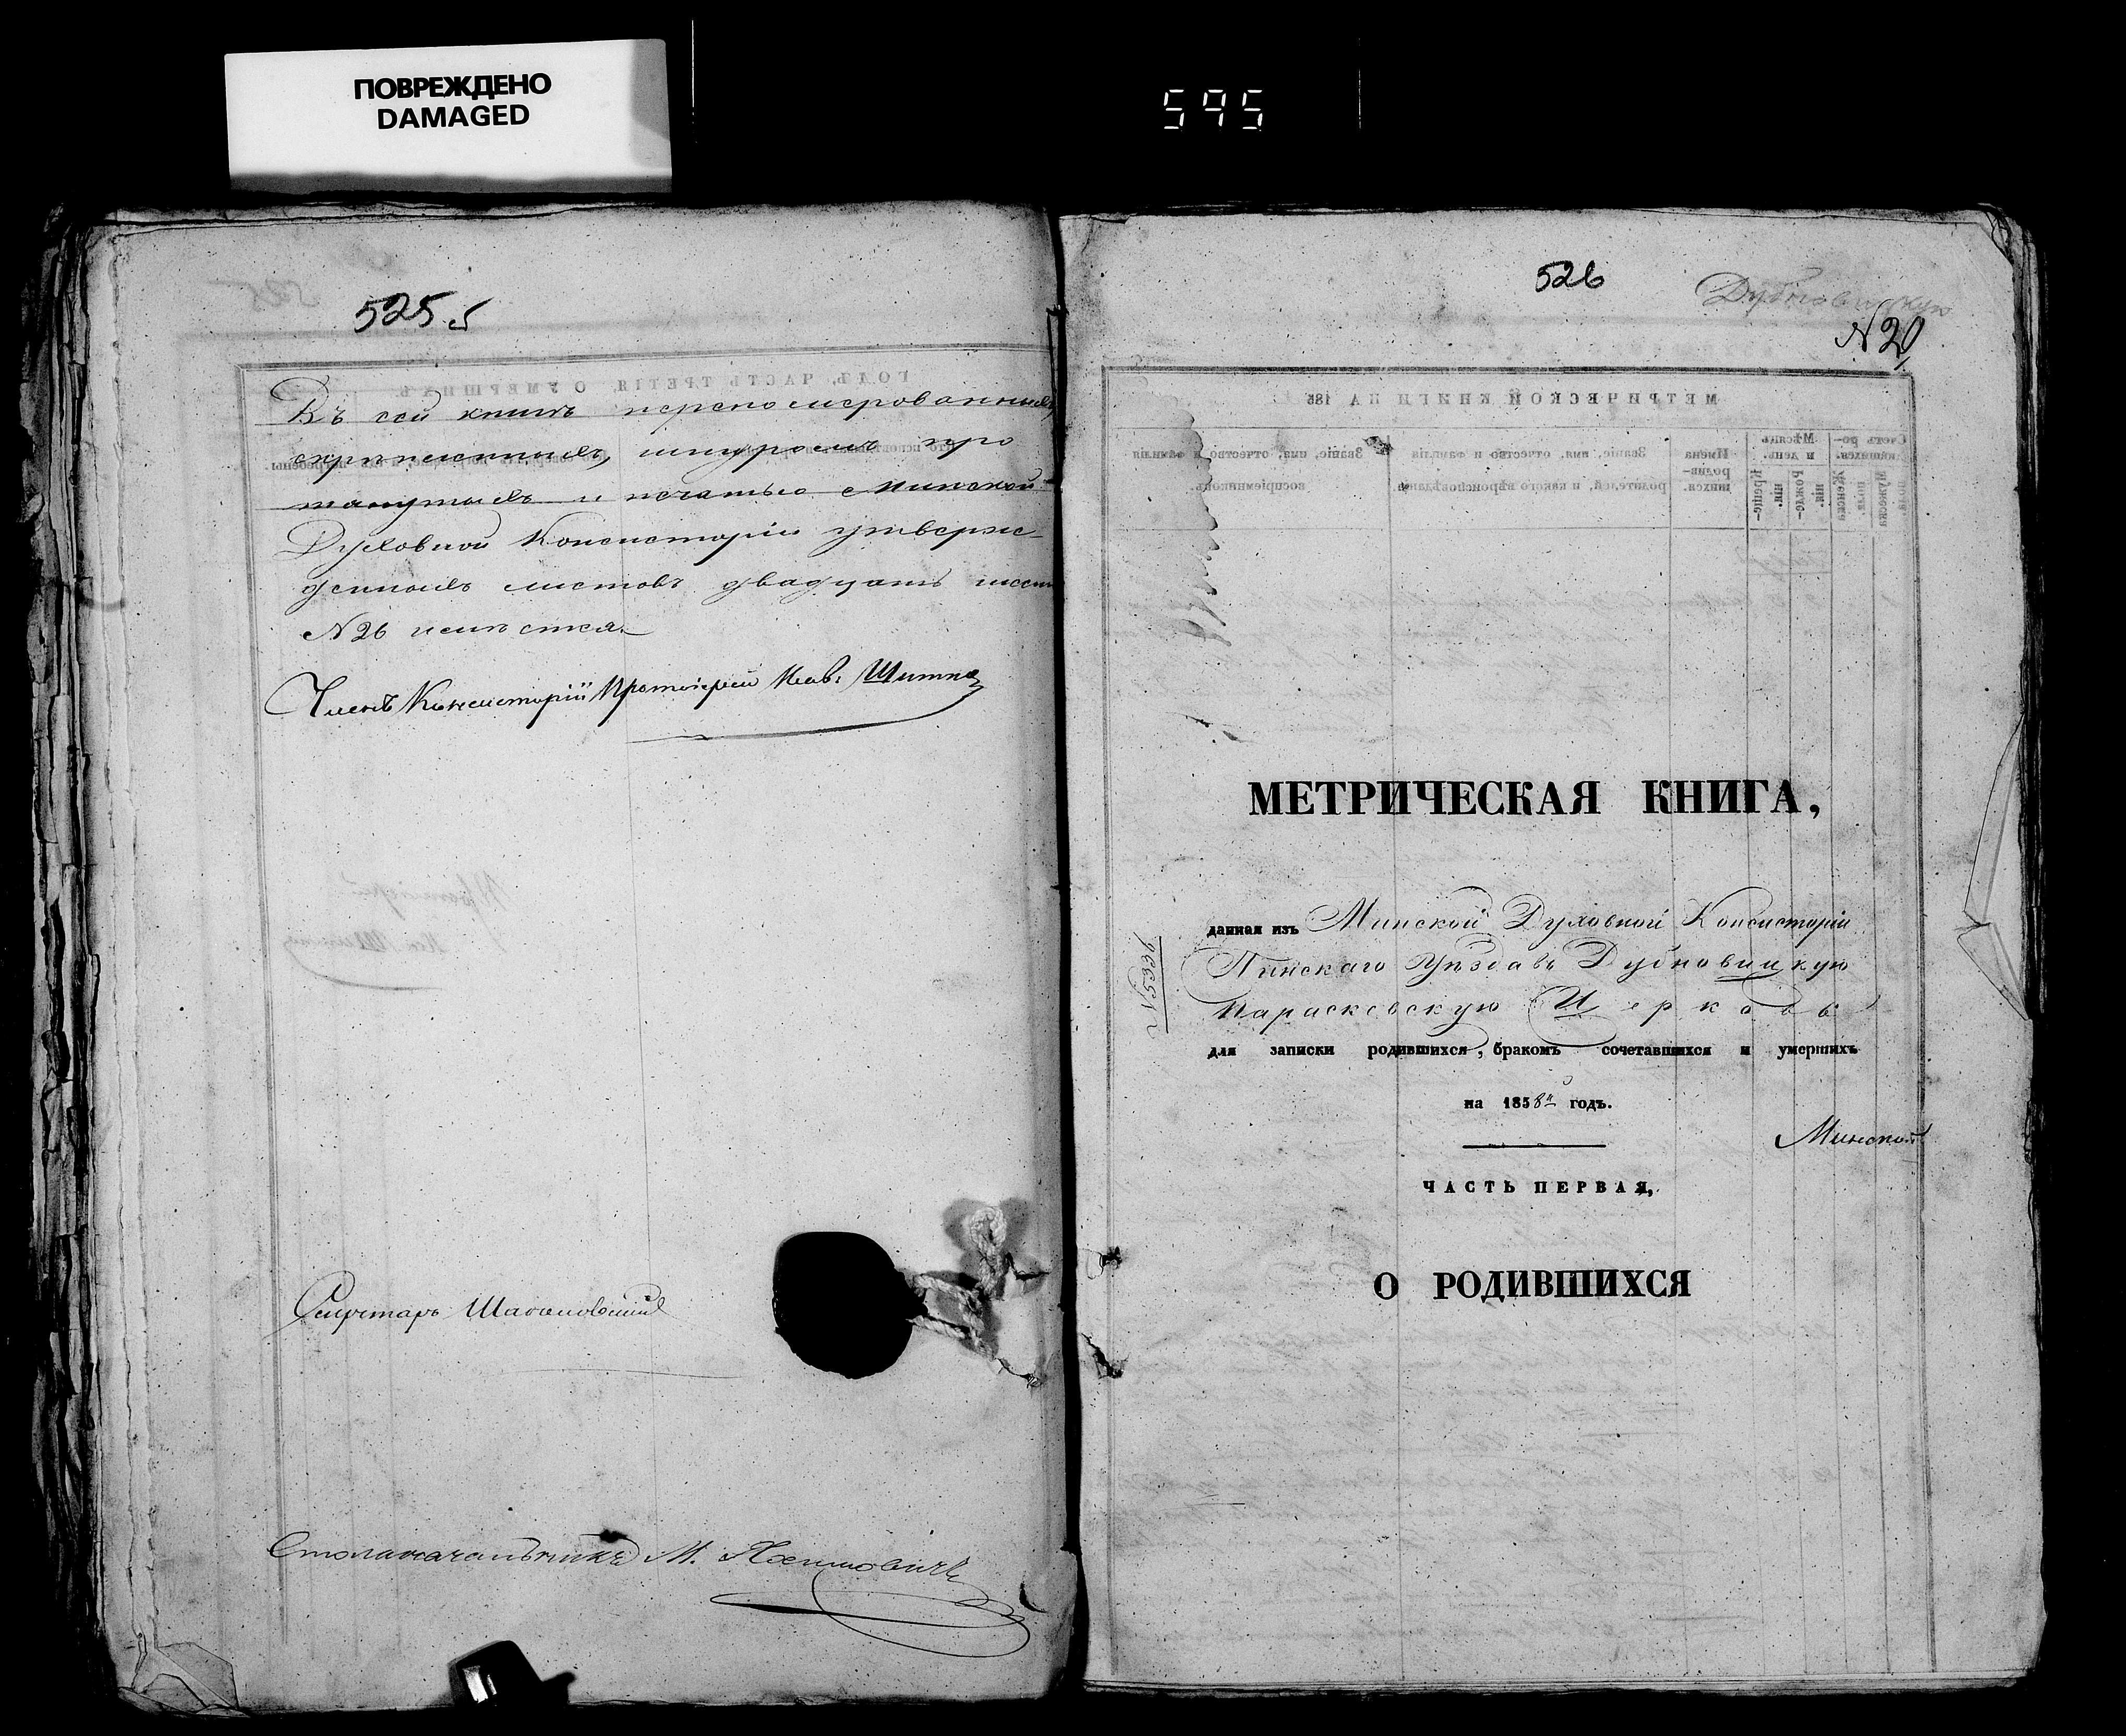 ПОВРЕЖДЕНО
DAMAGED
595
525
Въ сей книгѣ перенумерованныхъ,
скрѣпленныхъ, шнуромъ про
тянутыхъ и печатью Минской
Духовной Консисторіи утверж-
денныхъ листовъ двадцать шесть
N 26 имѣется.
Членъ Консисторіи Протоіерей
Секретарь
Столоначальникъ М.
526
Дубновицкую
N 20
МЕТРИЧЕСКАЯ КНИГА,
данная изъ Минской Духовной Консисторіи
Пинскаго Уѣзда въ Дубновицкую
Параскевскую Церковь
N 5339
для записки родившихся, бракомъ сочетавшихся и умершихъ
на 1858й годъ.
Минской
ЧАСТЬ ПЕРВАЯ,
О РОДИВШИХСЯ